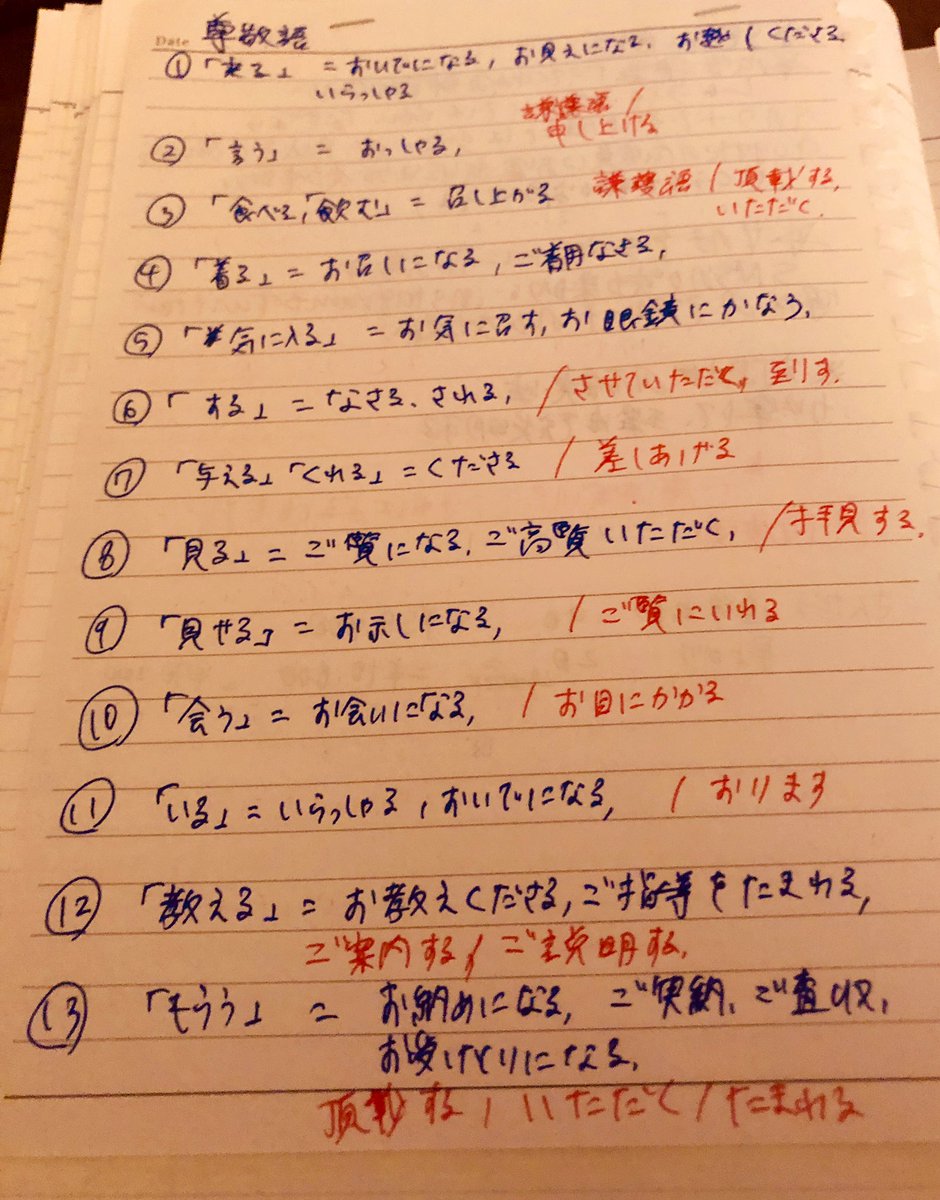 Date 尊敬語
①「来る」=おいでになる, お見えになる, お越しくださる
いらっしゃる
謙譲語/
②「言う」= おっしゃる, 申し上げる
③「食べる,「飲む」= 召し上がる 謙譲語/頂戴する,
いただく.
④「着る」= お召しになる, ご着用なさる,
⑤「気に入る」= お気に召す, お眼鏡にかなう,
⑥「する」= なさる、される, /させていただく,
⑦「与える」「くれる」= くださる /差しあげる
⑧「見る」= ご覧になる, ご高覧いただく, /拝見する,
⑨「見せる」= お示しになる, /ご覧にいれる
⑩「会う」= お会いになる, /お目にかかる
⑪「いる」= いらっしゃる, おいでになる, /おります
⑫「教える」= お教えくださる, ご指導をたまわる,
ご案内する/ご説明する,
⑬「もらう」= お納めになる, ご笑納、ご査収,
お受けとりになる,
頂戴する, いただく/たまわる